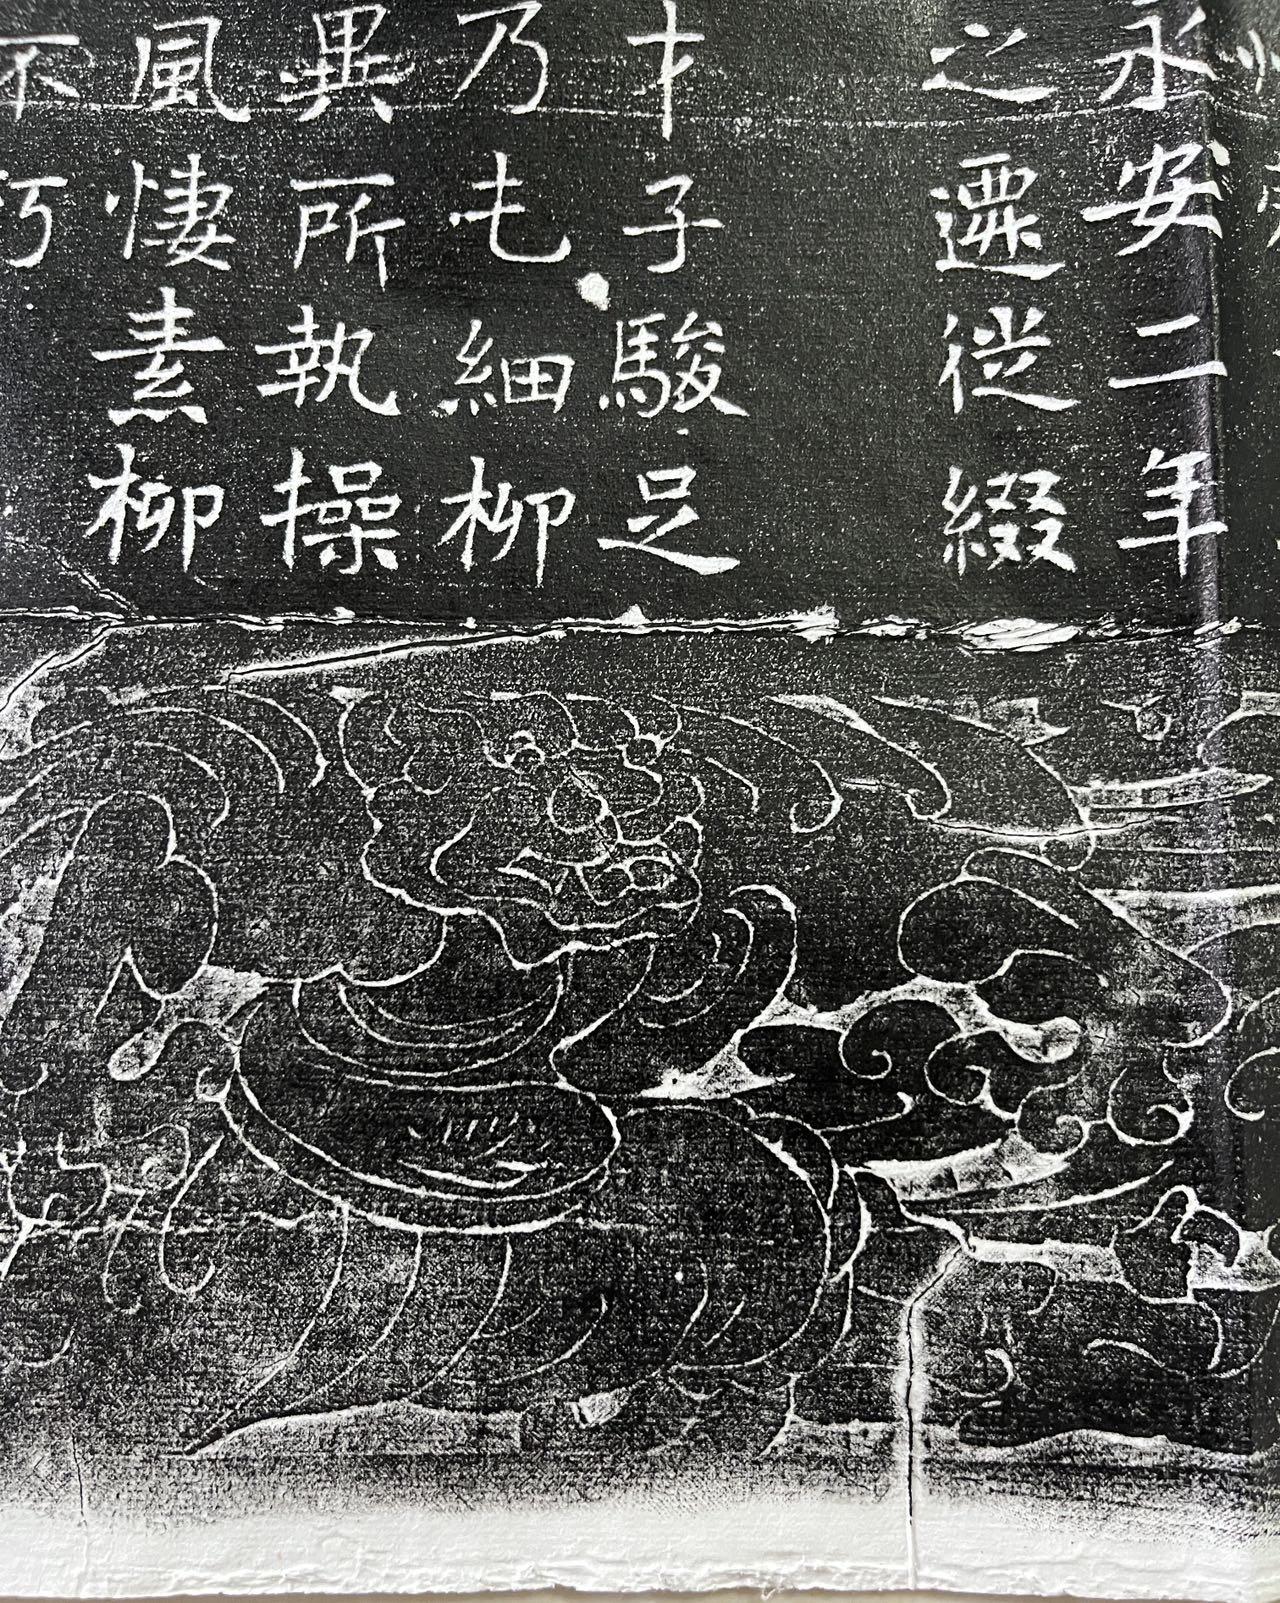 永安二年
之遷從綴
才子駿足
乃屯細柳
異所執操
風悽素柳
不朽